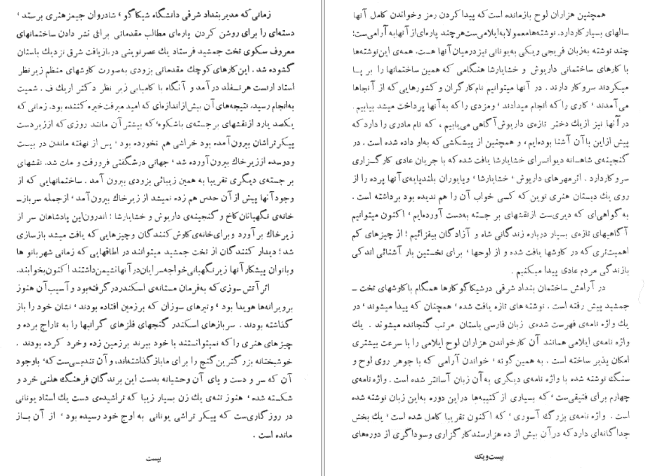 زمانی که مدیر بنداد شرقی دانشگاه شیکاگو ' شادروان جیمز هنری برستد '
دسته‌ای را برای روشن کردن پاره‌ای مطالب مقدماتی برای نقش دادن ساختمانهای
معروف سکوی تخت جمشید فرستاد یك عصر نوینی در بازیافت شرق نزدیك باستان
گشوده شد. این کارهای کوچك مقدماتی بزودی بصورت کاوشهای منظم زیر نظر
استاد ارنست هرتسفلد در آمد و آنگاه با کامیابی زیر نظر دکتر اریك ف . شمیت
به انجام رسید. نتیجه‌های آن بیش از اندازه‌ای که امید میرفت خیره کننده بود. زمانی که
یکصد یارد از نقشهای برجسته‌ی باشکوه' که بیشتر آن مانند روزی که از زیر دست
پیکرتراشان بیرون آمده بود خراشی هم نخورده بود ' پس از نهفته ماندن در بیست
ودوسده از زیر خاك بیرون آورده شد ' جهانی در شگفتی فرو رفت و مات شد. نقشهای
برجسته‌ی دیگری تقریبا به همین زیبائی بزودی بیرون آمد. ساختمانهایی که از
وجود آنها پیش از آن حدس هم زده نمیشد از زیر خاك بیرون آمد ' از جمله سرباز
خانه‌ی نگهبانان کاخ و گنجینه‌ی داریوش و خشایارشا ' اندرون این پادشاهان سر از
زیر خاك بر آورد و برای خانه‌ی کاوش کنندگان و چیزهایی که یافت میشد بازسازی
شد ' دیدار کنندگان از تخت جمشید میتوانند در اطاقهایی که زمانی شهربانو ها
وبانوان پیشکار آنها زیر نگهبانی خواجه سرایان در آنها نشیمن داشتند اکنون بخوابند.
اثر آتش سوزی که به فرمان مستانه‌ی اسکندر در گرفته بود و آسیب آن هنوز
بر ویرانه‌ها هویدا بود ' و تیرهای سوزان که بر زمین افتاده بودند ' نشان خود را باز
گذاشته بودند. سربازهای اسکندر گنجهای فلزهای گرانبها را به تاراج برده و
چیزهای هنری را که نمیتوانستند با خود ببرند بر زمین زده و خرد کرده بودند .
خوشبختانه بزرگترین گنج را برای ما باز گذاشته‌اند، و آن تندیسی‌ست که' باوجود
آن که سر و دست و پای آن وحشیانه بدست این برندگان فرهنگ هلنی خرد و
شکسته شده ' هنوز تنه‌ی یك زن بسیار زیبا که تراشیده‌ی دست یك استاد یونانی
در روزگاری‌ست که پیکر تراشی یونانی به اوج خود رسیده بود ' از آن باز
مانده است .
بیست
همچنین هزاران لوح بازمانده است که پیدا کردن رمز و خواندن کامل آنها
سالهای بسیار کار دارد. نوشته‌ها معمولا به ایلامی‌ست هر چند پاره‌ای از آنها به آرامی‌ست؛
چند نوشته به زبان فریجی و یکی به یونانی نیز در میان آنها هست. همه‌ی این نوشته‌ها
با کارهای ساختمانی داریوش و خشایارشا هنگامی که همین ساختمانها را بر پا
میکردند سر و کار دارند. در آنها میتوانیم نام کارگران و کشورهایی که از آنجاها
می‌آمدند' کاری را که انجام میدادند' و مزدی را که به آنها پرداخت میشد بیابیم.
در آنها نیز از یك دختر تازه‌ی داریوش آگاهی می‌یابیم ، که نام مادری را دارد که
پیش از این با آن آشنا بوده‌ایم ، و همچنین از پیشکشی که به او داده شده است. در
گنجینه‌ی شاهانه دیوانسرای خشایارشا یافت شده که با جریان عادی کار گزاری
سر و کار دارد. اثر مهرهای داریوش' خشایارشا' و یاوران بلند پایه‌ی آنها پرده را از
روی یك دبستان هنری نوین که کسی خواب آن را هم ندیده بود برداشته است .
به گواهی‌ای که دیری‌ست از نقشهای بر جسته به دست آورده‌ایم ' اکنون میتوانیم
آگاهیهای تازه‌ی بسیار درباره زندگانی شاه و آزادگان بیفزائیم ' از چیزهای کم
اهمیت‌تری که در کاوشها یافت شده و از لوحها ' برای نخستین بار آشنائی اندکی
با زندگی مردم عادی پیدا میکنیم .
در آرامش ساختمان بنداد شرقی در شیکاگو کارها همگام با کاوشهای تخت ـ
جمشید پیش رفته است . نوشته های تازه یافت شده ' همچنان که پیدا میشوند ' در
یك واژه نامه‌ی فهرست شده‌ی زبان فارسی باستان مرتب گنجانده میشوند .
واژه نامه‌ی ایلامی همانند آن کار خواندن هزاران لوح ایلامی را با سرعت بیشتری
امکان پذیر ساخته است . به همین گونه ' خواندن آرامی که با جوهر روی لوح و
سنگ نوشته شده با واژه نامه‌ی دیگری به آن زبان آسانتر شده است . واژه نامه‌ی
چهارم برای فنیقی‌ست' که بسیاری از کتیبه‌ها در این دوره به این زبان نوشته شده
در واژه نامه‌ی بزرگ آسوری ' که اکنون تقریبا کامل شده است ' یك بخش
جداگانه‌ای دارد که در آن بیش از ده هزار سند کار گزاری و سوداگری از دوره‌های
بیست‌ویك